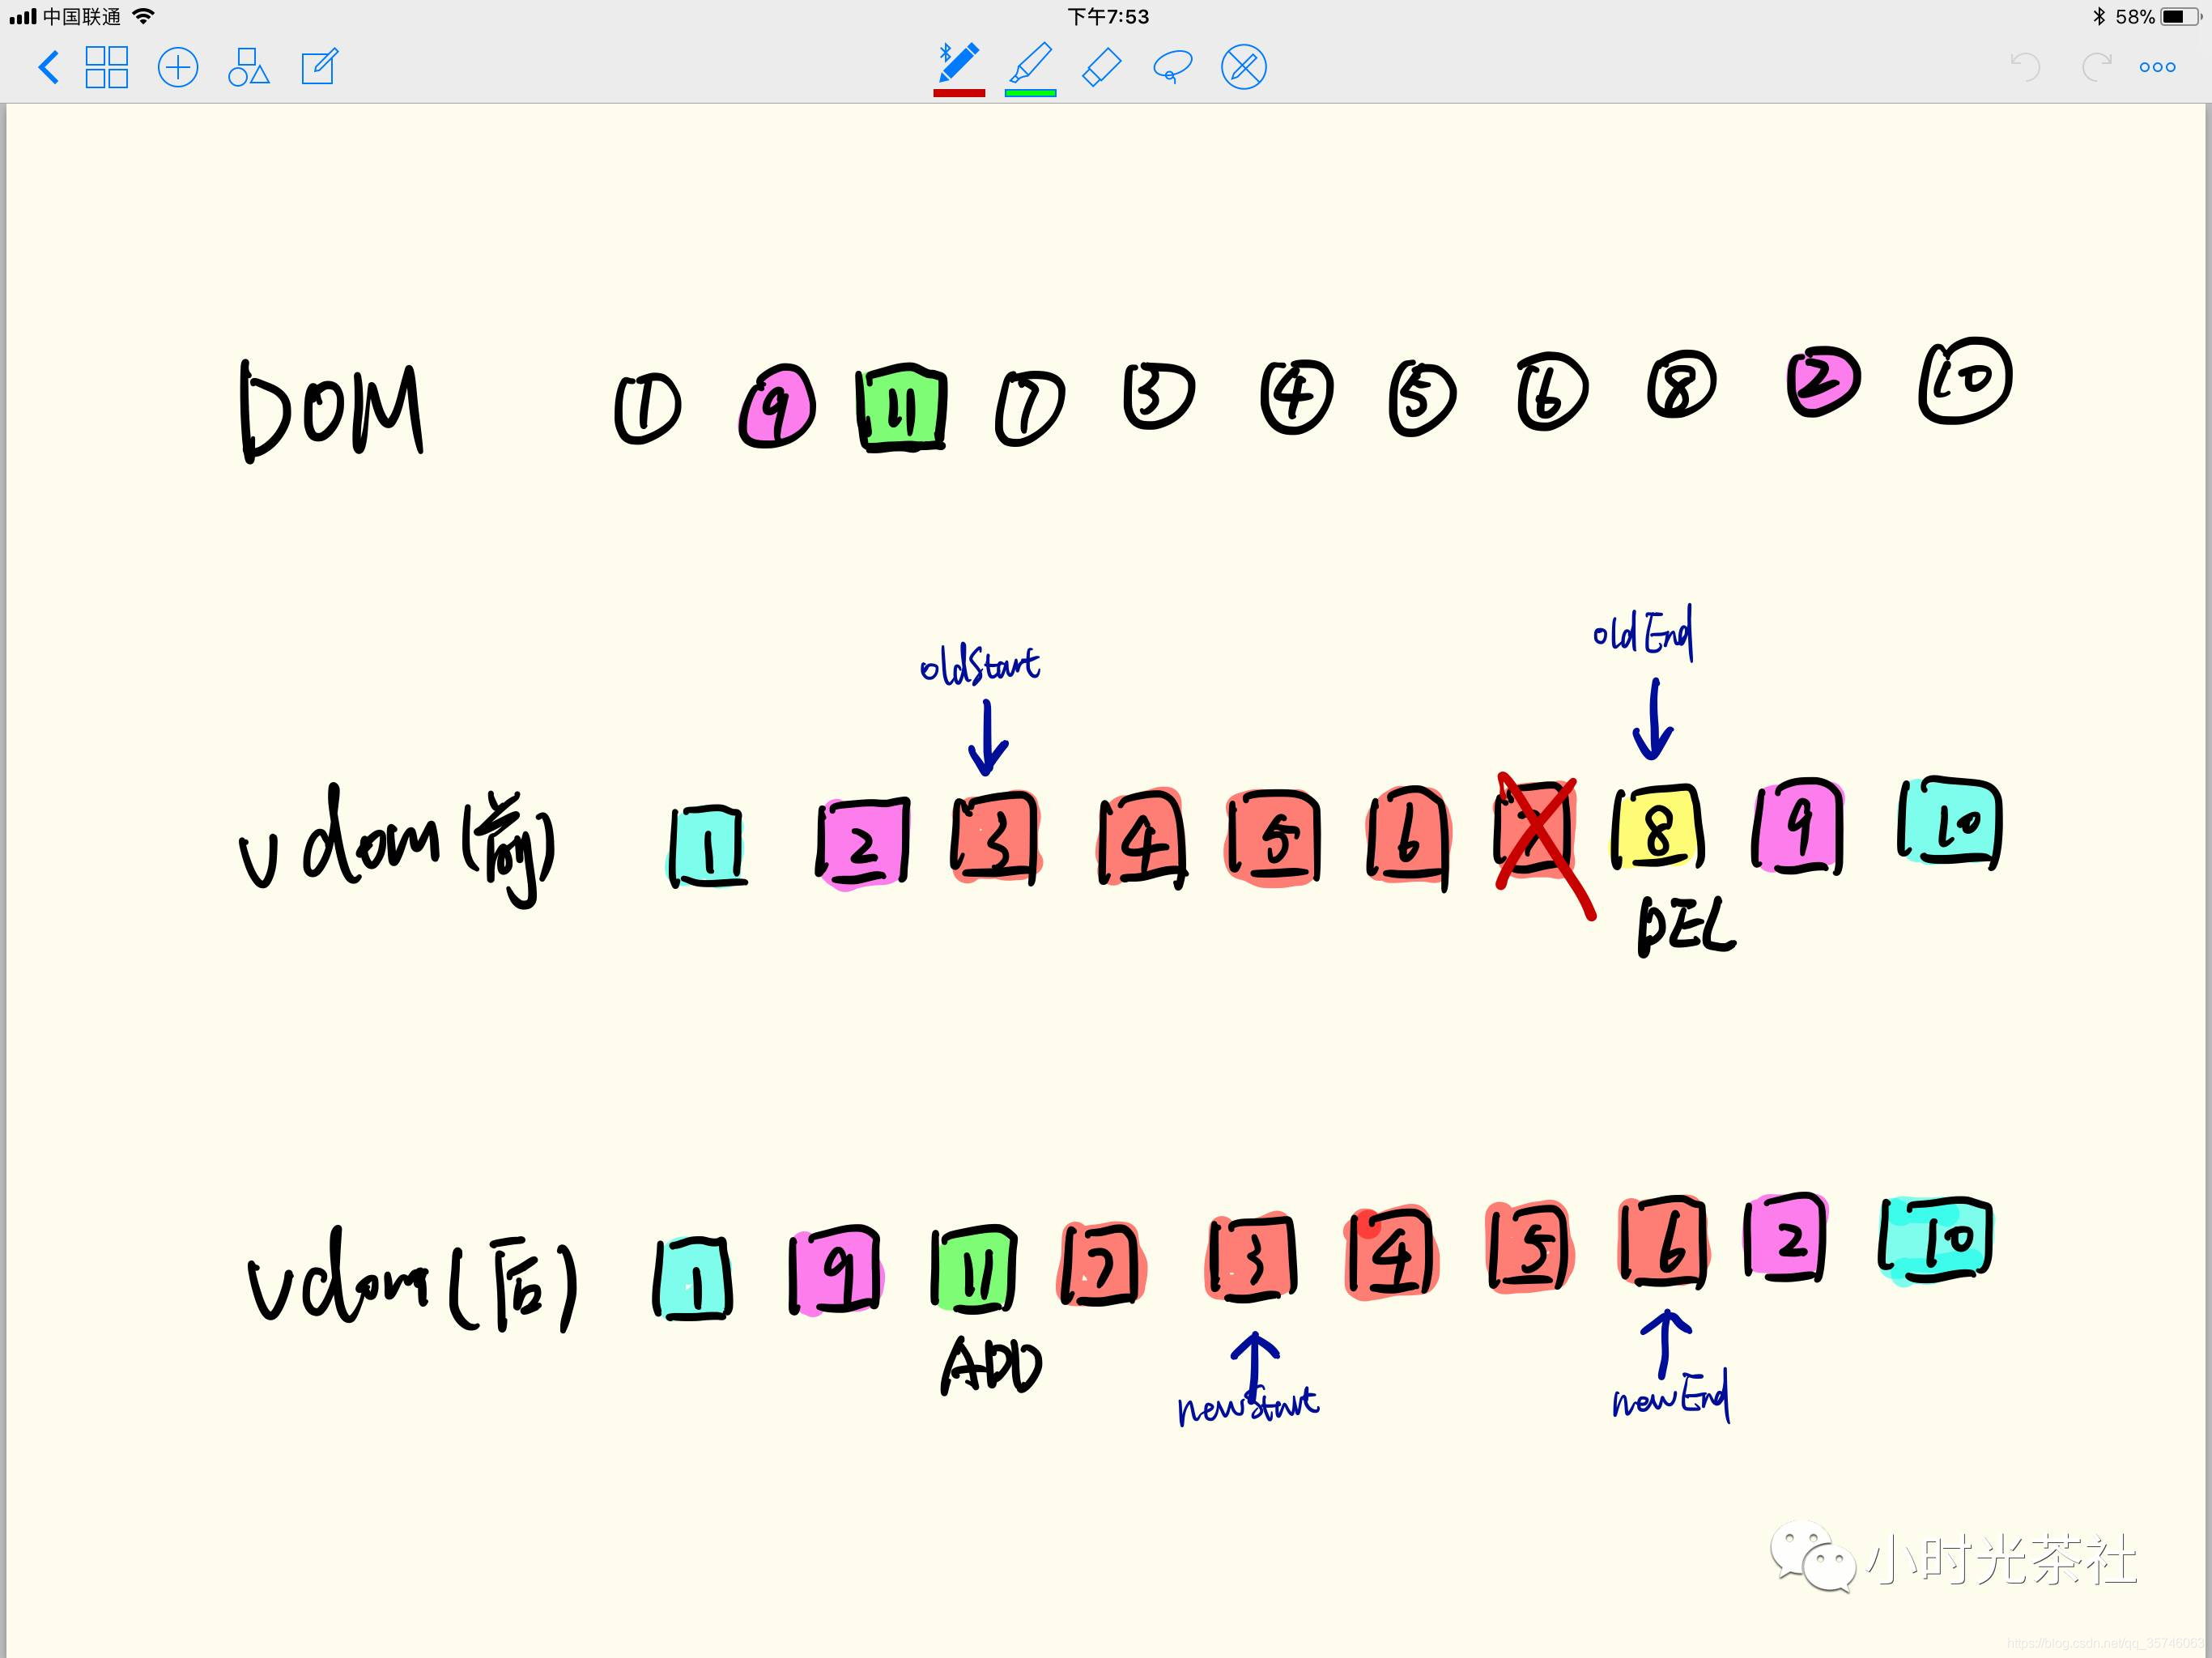 中国联通 下午7:53 58%
DOM 1 9 11 7 3 4 5 6 8 2 10
oldStart oldEnd
vdom(前) 1 2 3 4 5 6 8 9 10
DEL
vdom(后) 1 9 11 7 3 4 5 6 2 10
ADD
newStart newEnd
小时光茶社
https://blog.csdn.net/qq_35746063